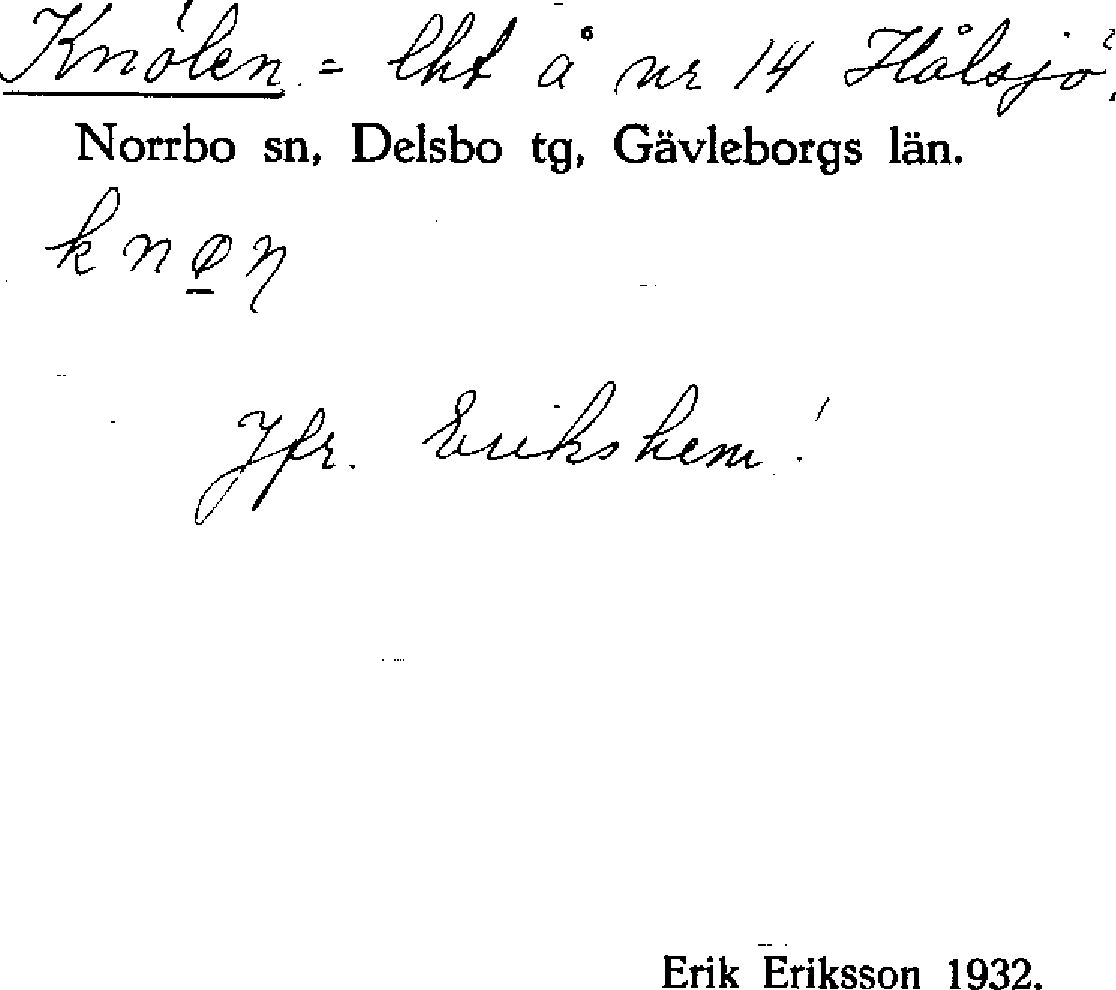 Knölen = lht å nr 14 Hålsjö.
Norrbo sn, Delsbo tg, Gävleborgs län.
knøņ
Jfr. Erikshem!
Erik Eriksson 1932.